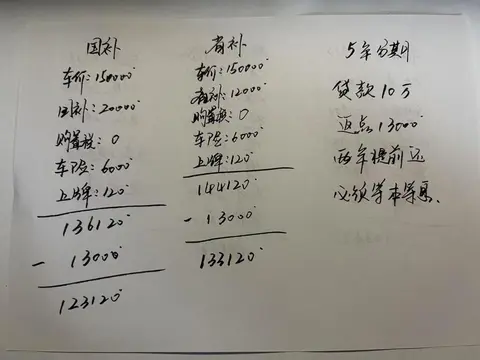 国补
车价:150000
国补:20000
购置税:0
车险:6000
上牌:120
136120
- 13000
123120
省补
车价:150000
省补:12000
购置税:0
车险:6000
上牌:120
144120
- 13000
133120
5年分期
贷款10万
返点13000
两年提前还
必须等本等息.